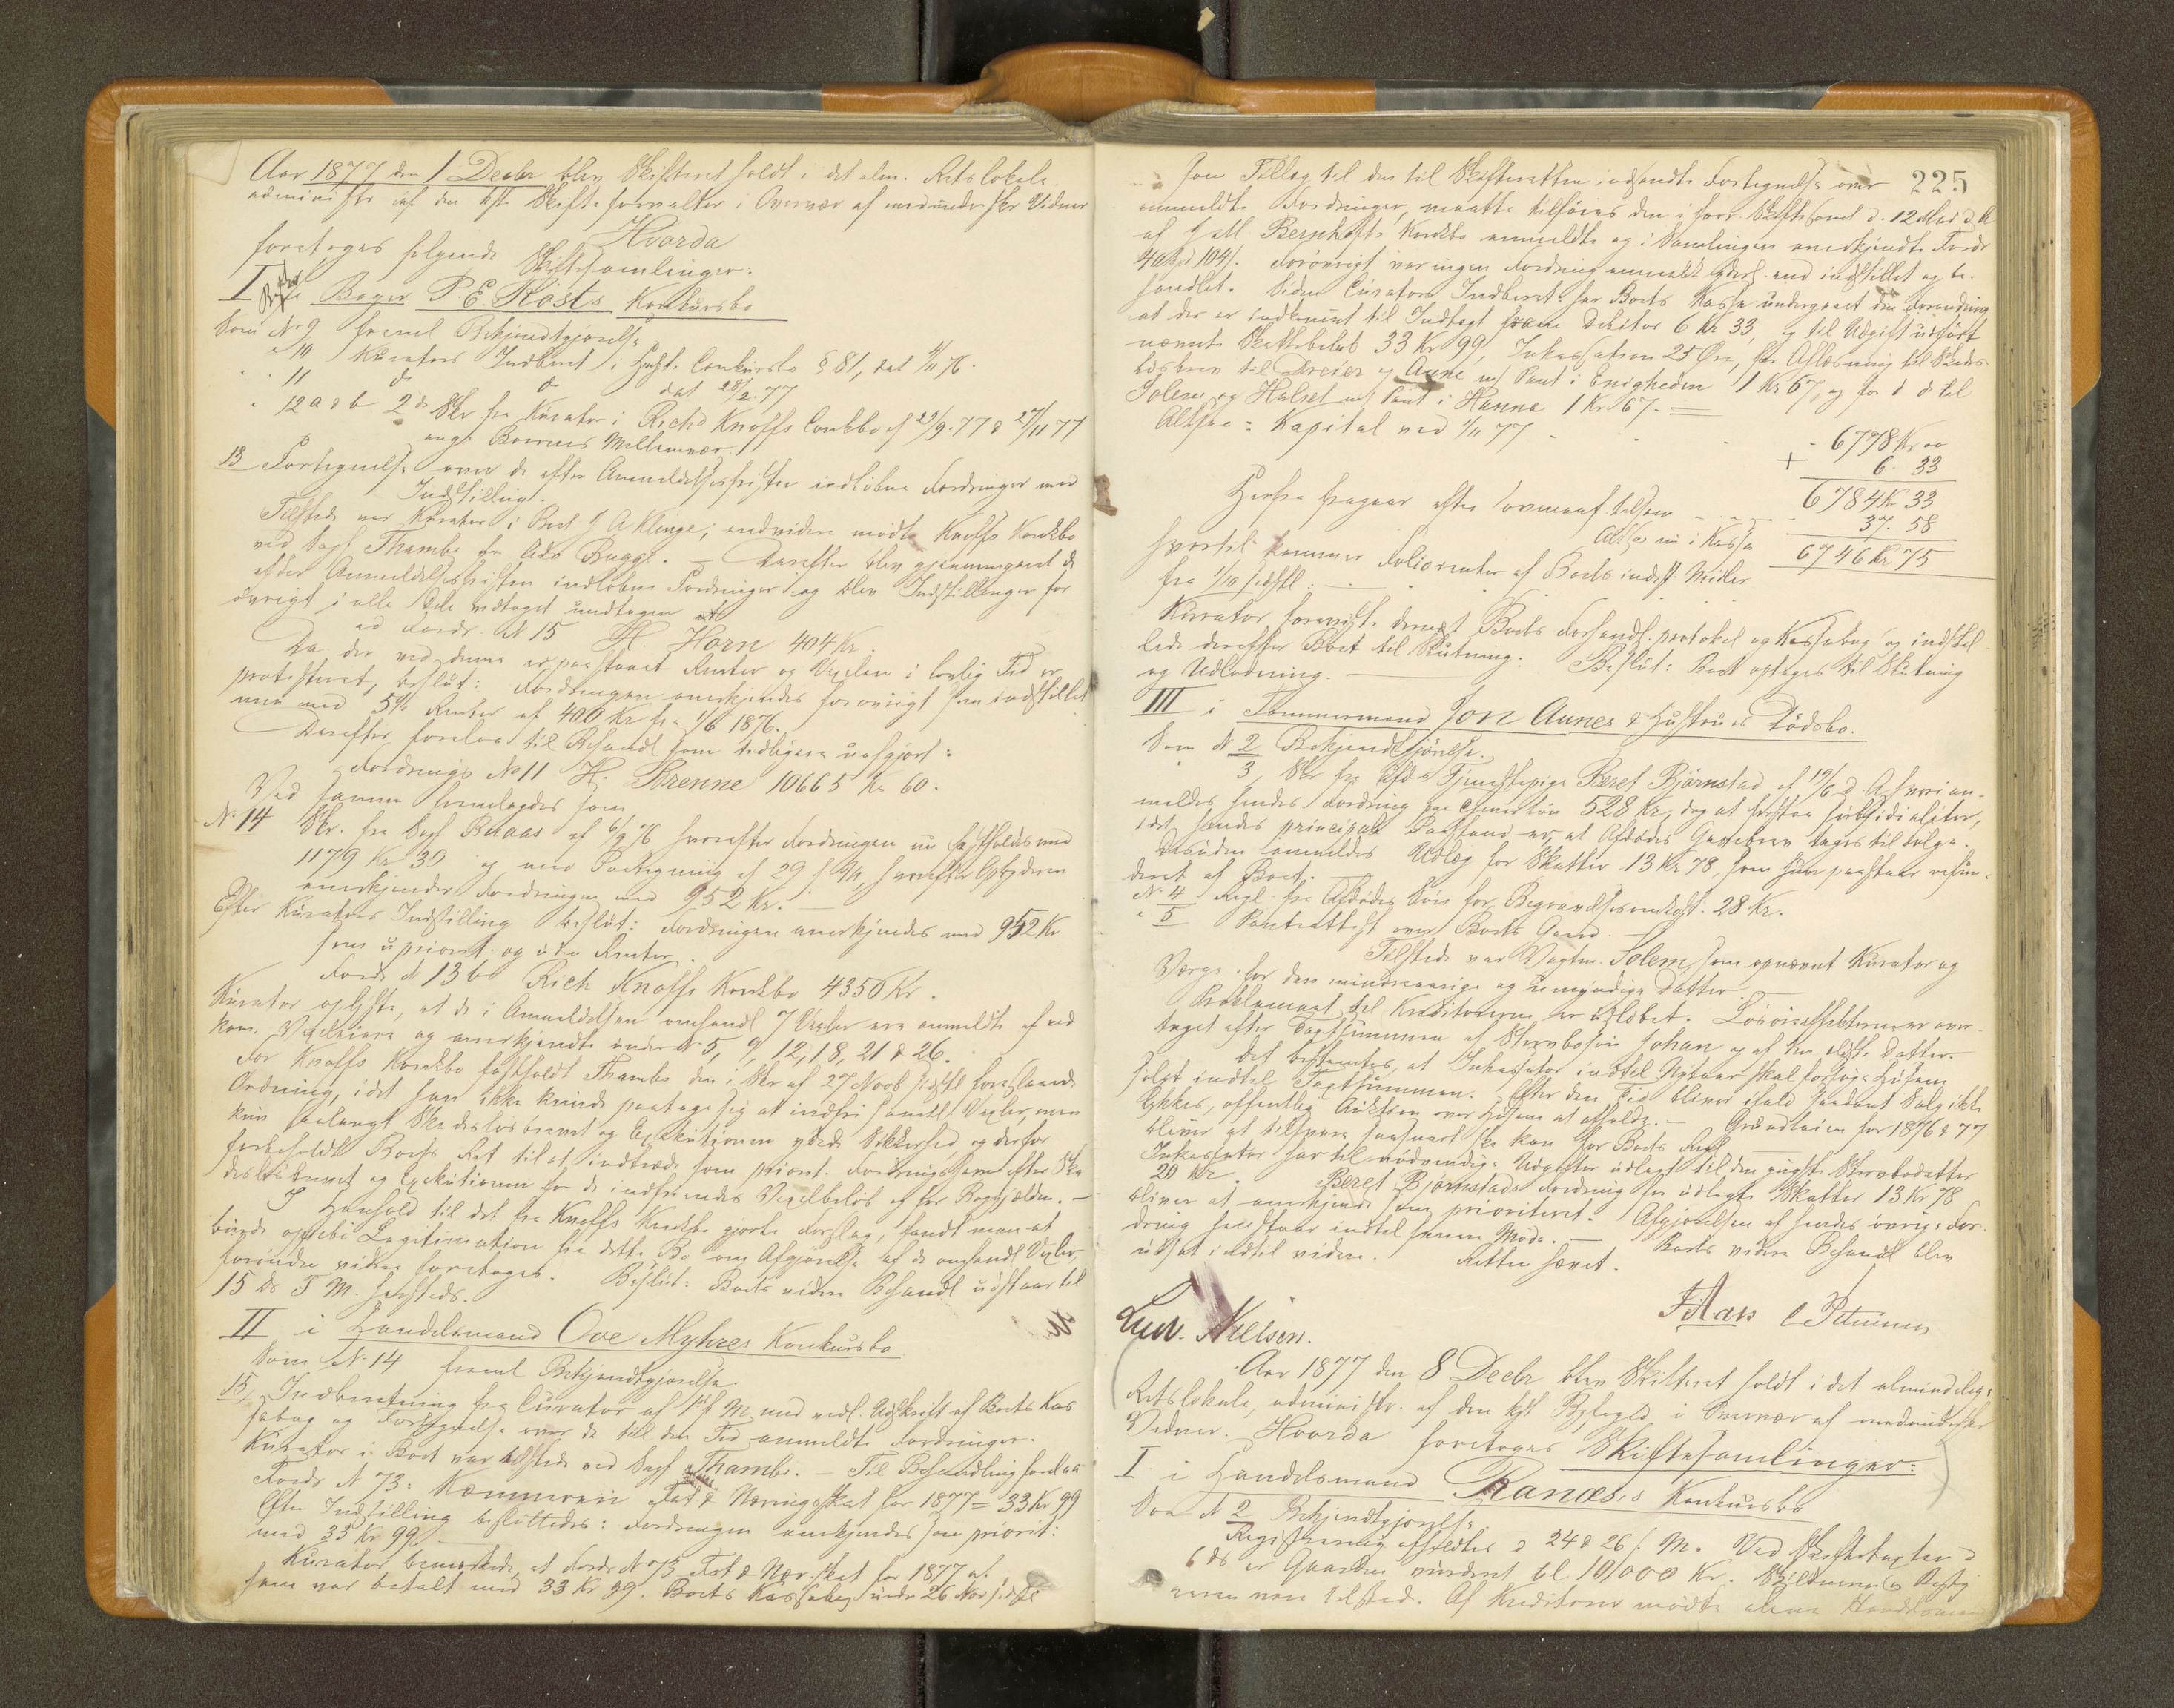 Aar 1877 den 1 Decbr blev Skifteret holdt i det alm. Retslokale
administr. af den kst. Skifteforvalter i Overvær af medunderskr. Vidner
Hvorda
foretoges følgende Skiftesamlinger:
I i Bager P. E. Kösts Konkursbo
Som No 9 freml. Bekjendtgjørelse
" 10 Kurators Indberet. i Henh. Conkurslo § 81, dat
" 11 do do dat 28/2 77
" 12 a & b 2de Skr. fra Kurator i Richd Knoffs Conkbo af 29/9 77 & 27/11 77
ang. Boernes Mellemvær.
13 Fortegnelse over de efter Anmeldelsesfristen indløbne Fordringer med
Indstilling.
Tilstede var Kurator i Boet J. A. Klinge, endvidere mødte Knoffs Konkbo
ved Sagf. Thambs for Adv. Bugge. — Derefter blev gjennemgaaet de
efter Anmeldelsesfristen indløbne Fordringer og blev Indstillingen for
øvrigt i alle Dele vedtaget undtagen
ad Fordr. No 15 H. Horn 404 Kr.
Da der ved denne er paastaaet Renter og Vexlen i lovlig Tid er
protesteret, beslut: Fordringen anerkjendes forøvrigt som indstillet
men med 5% Renter af 400 Kr fra 1/6 1876.
Derefter forelaa til Behandl. som tidligere uafgjort:
Fordrings No 11 H. Brenne 10665 Kr 60.
Ved samme fremlagdes som
No 14 Skr. fra Sagf. Buaas af 6/9 76 hvorefter Fordringen nu fastholdes med
1179 Kr 39 og med Paategning af 29 f. M., hvorefter
anerkjender Fordringen med 952 Kr. —
Efter Kurators Indstilling beslut: Fordringen anerkjendes med 952 Kr
som upriorit. og uden Renter.
Fordr. No 13 b Rich Knoffs Konkbo 4350 Kr.
Kurator oplyste, at de i Anmeldelsen omhandl. 7 Vexler ere anmeldte af ved
kom. Vexeleiere og anerkjendte under No 5, 9, 12, 18, 21 & 26.
For Knoffs Konkbo fastholdt Thambs den i Skr. af 27 Novb. sidstl. foreslaaede
Ordning, idet han ikke kunde paatage sig at indfri samtl. Vexler, men
kun saalangt Skadesløsbrevet og Exekutionen ydede Sikkerhed, og derfor
forbeholdt Boets Ret til at indtræde som priorit. Fordringshaver efter Ska
desløsbrevet og Exekutionen for de indfriendes Vexelbeløb
I Henhold til det fra Knoffs Konkbo gjorte Forslag, fandt man at
burde Legitimation fra dette Bo om Afgjørelse af de omhandl. Vexler
forinden videre foretoges. Beslut: Boets videre Behandl. udstaar til
15 ds T. M. hersteds.
II i Handelsmand Ove Myhres Konkursbo
Som No 14 freml. Bekjendtgjørelse
15 Indberetning fra Curator af med vedl. Udskrift af Boets Kas
sabog og Fortegnelse over de til den Tid anmeldte Fordringer.
Kurator i Boet var tilstede ved Sagf. Thambs. — Til Behandling forelaa
Fordr. No 73: Kæmneren Fat. & Næringsskat for 1877 = 33 Kr 99
Efter Indstilling besluttedes: Fordringen anerkjendes som priorit:
med 33 Kr 99.
Kurator bemærkede, at Fordr. No 73 Fat. & Nær. skat for 1877
som var betalt med 33 Kr 99. Boets Kassabog under 26 Nov sidstl.
225
Som Tillæg til den til Skifteretten indsendte Fortegnelse over
anmeldte Fordringer, maatte tilføies den i forr. Skiftesaml. d. 12
af Bernhofts Konkbo anmeldte og i Samlingen anerkjendte Fordr.
Forøvrigt var ingen Fordring anmeldt end indstillet og be-
handlet. Siden Curators Indberet. har Boets Kasse undergaaet den Forandring
at der er indkommet til Indtægt Debitor 6 Kr 33, og til Udgift udført
nævnte Skattebeløb 33 Kr 99, Inkassation 25 Øre, for Aflæsning til Skades-
løsbrev til Dreier og Aune m/ Pant i Enigheden 1 Kr 67, og for d d til
Solem og Halset m/ Pant i Hanna 1 Kr 67. —
Altsaa: Kapital ved 1/11 77 - - - - 6778 Kr 00
+ 6. 33
6784 Kr 33
Herfra fragaar efter - - - 37. 58
Altsaa nu i Kassa 6746 Kr 75
Hvortil kommer Foliorenter af Boets indest. Midler
fra 1/10 sidstl.
Kurator foreviste dernæst Boets Forhandl.protokol og Kassabog og indstil
lede derefter Boet til Slutning. Beslut: Boet optages til Slutning
og Udlodning. —
III i Tømmermand Jon Aunes & Hustrues Dødsbo.
Som No 2 Bekjendtgjørelse.
" 3, Skr. fra Tjenestepige Beret Bjørnstad af 19/6 d. A. hvori an-
meldes hendes Fordring 528 Kr, dog at forstaa subsidialiter,
idet hendes principale Paastand er, at Afdødes Gavebrev tages til følge.
Desuden anmeldes Udlæg for Skatter 13 Kr 78, som hun paastaar refun-
deret af Boet.
No 4 Regl. fra Afdødes Søn for Begravelsesomkost. 28 Kr.
" 5 Pantattest over Boets Gaard. —
Tilstede var Vagtm. Solem, som opnævnt Kurator og
Værge for den mindreaarige og umyndige Datter. —
Proklamaet til Kreditorerne er udløbet. Løsøreeffekterne er over
taget efter Taxtsummen af Stervbosøn Johan og af den ældste Datter. —
Det bestemtes, at Inkassator indtil Nytaar skal forsøge Husene
solgt indtil Taxtsummen. Efter den Tid bliver ifald saadant Salg ikke
lykkes, offentlig Auktion over Husene at afholde. — Grundleien for 1876 & 77
bliver at tilsvare saasnart ske kan for Boets Regl. —
Inkassator har til nødvendige Udgifter udlagt til den yngste Stervbodatter
20 Kr. Beret Bjørnstads Fordring for udlagte Skatter 13 Kr 78
bliver at anerkjende som prioriteret. Afgjørelsen af hendes øvrige For
dring henstaar indtil senere Møde. — Boets videre Behandl. blev
udsat indtil videre. Retten hævet.
Ludv. Nielsen.
Aar 1877 den 8 Decbr blev Skifteret holdt i det almindelige
Retslokale, administr. af den kst Byfoged i Overvær af medunderskr.
Vidner. Hvorda foretoges Skiftesamlinger:
I i Handelsmand Ranæs's Konkursbo
Som No 2 Bekjendtgjørelse.
Registrering afholdtes d 24 & 26 f. M. Ved Skiftetaxten d
6 ds er Gaarden vurderet til 10,000 Kr.
vare tilsted. Af Kreditorer mødte alene Handelsmand